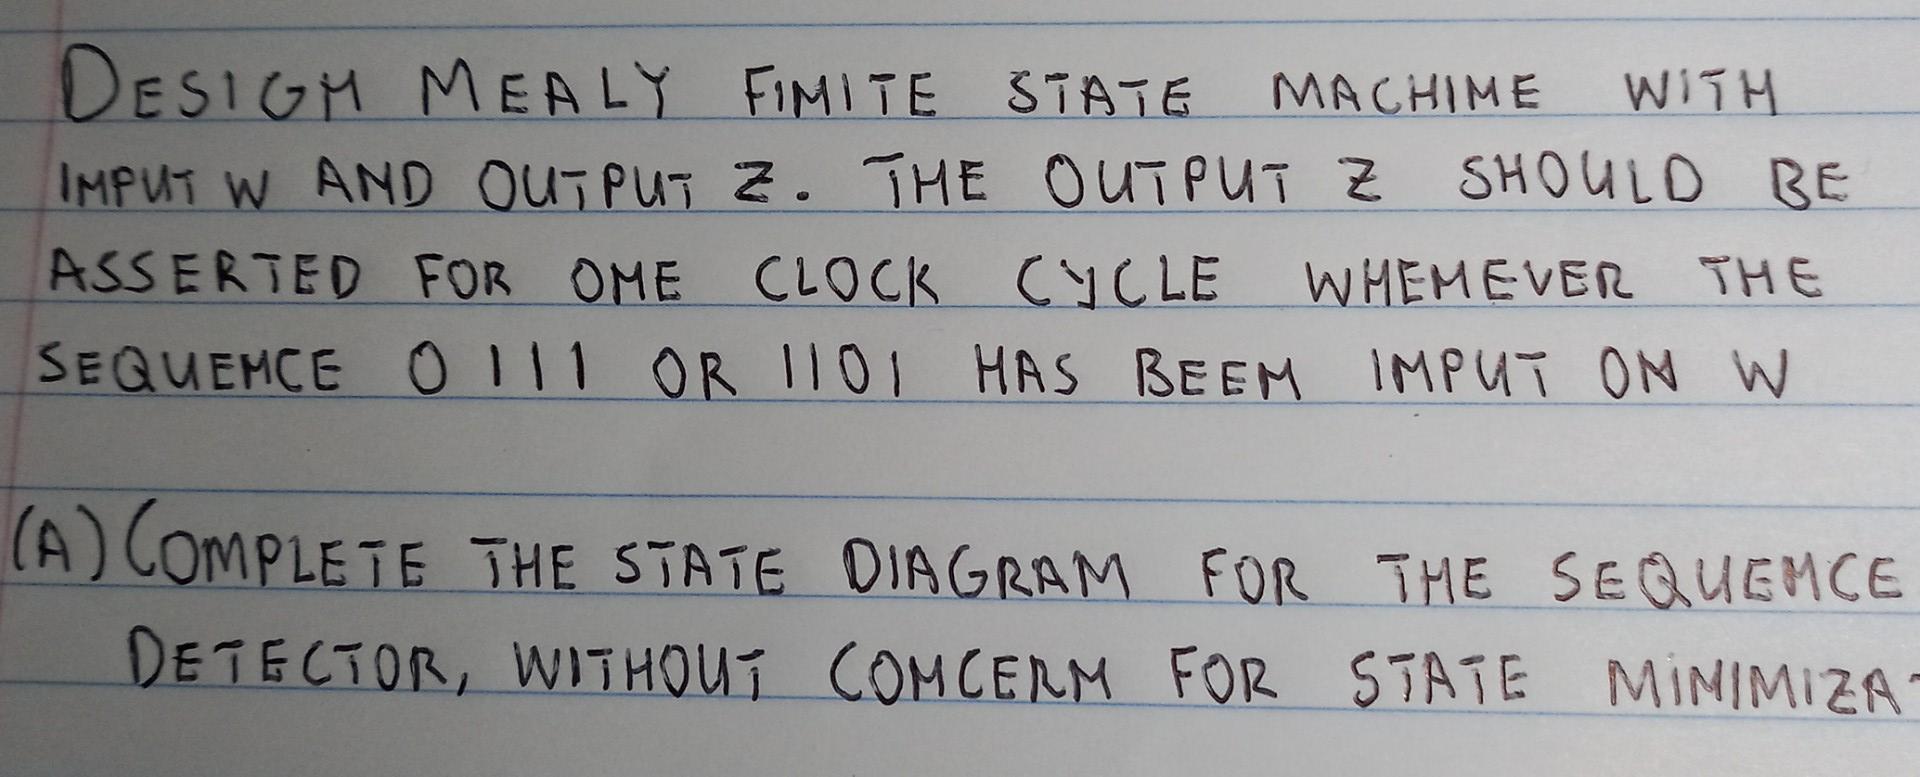 DESIGN MEALY FINITE STATE MACHINE WITH
INPUT W AND OUTPUT Z. THE OUTPUT Z SHOULD BE
ASSERTED FOR ONE CLOCK CYCLE WHENEVER THE
SEQUENCE 0111 OR 1101 HAS BEEN INPUT ON W
(A) COMPLETE THE STATE DIAGRAM FOR THE SEQUENCE
DETECTOR, WITHOUT CONCERN FOR STATE MINIMIZA-